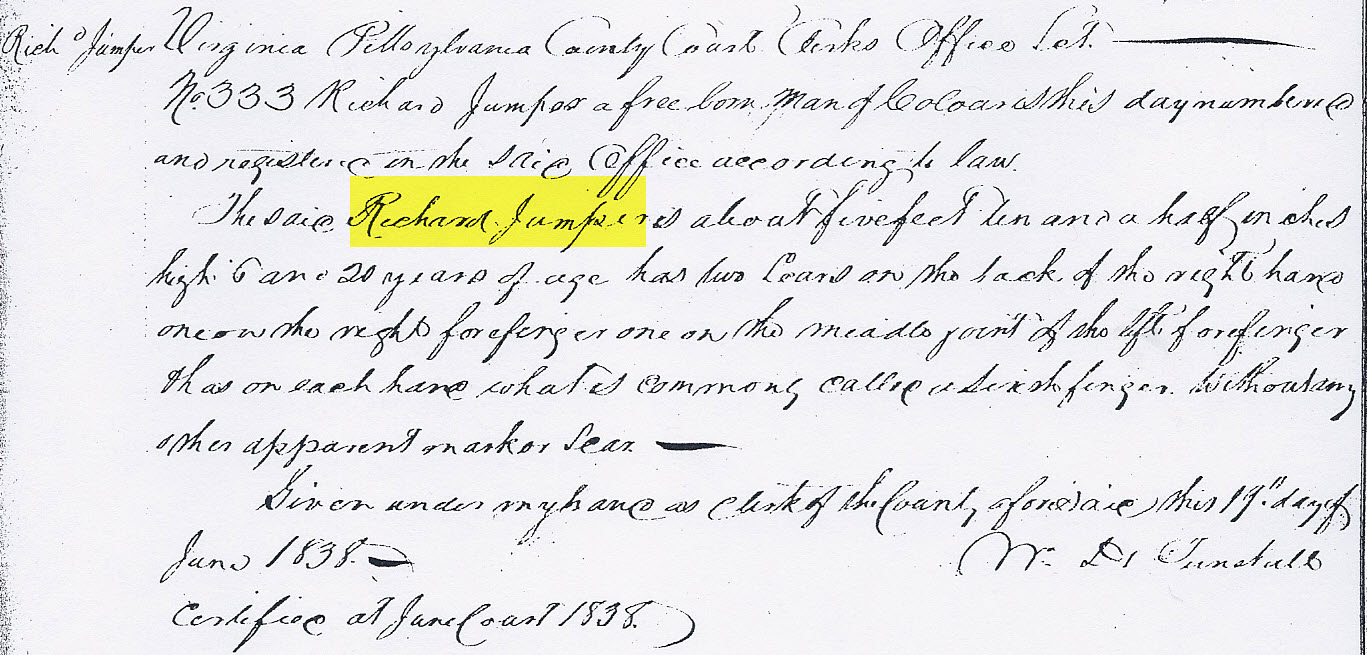 Richd Jumper Virginia Pittsylvania County Court Clerks Office Sct.
No 333 Richard Jumper a free born man of Colour is this day numbered
and registered in the said Office according to law.
The said Richard Jumper is about five feet ten and a half inches
high 6 and 20 years of age has two Scars on the back of the right hand
one on the right forefinger one on the middle joint of the left forefinger
& has on each hand what is commonly called a sixth finger. Without any
other apparent mark or Scar.
Given under my hand as clerk of the County aforesaid this 19th day of
June 1838.
Wm. Tunstall
Certified at June Court 1838.